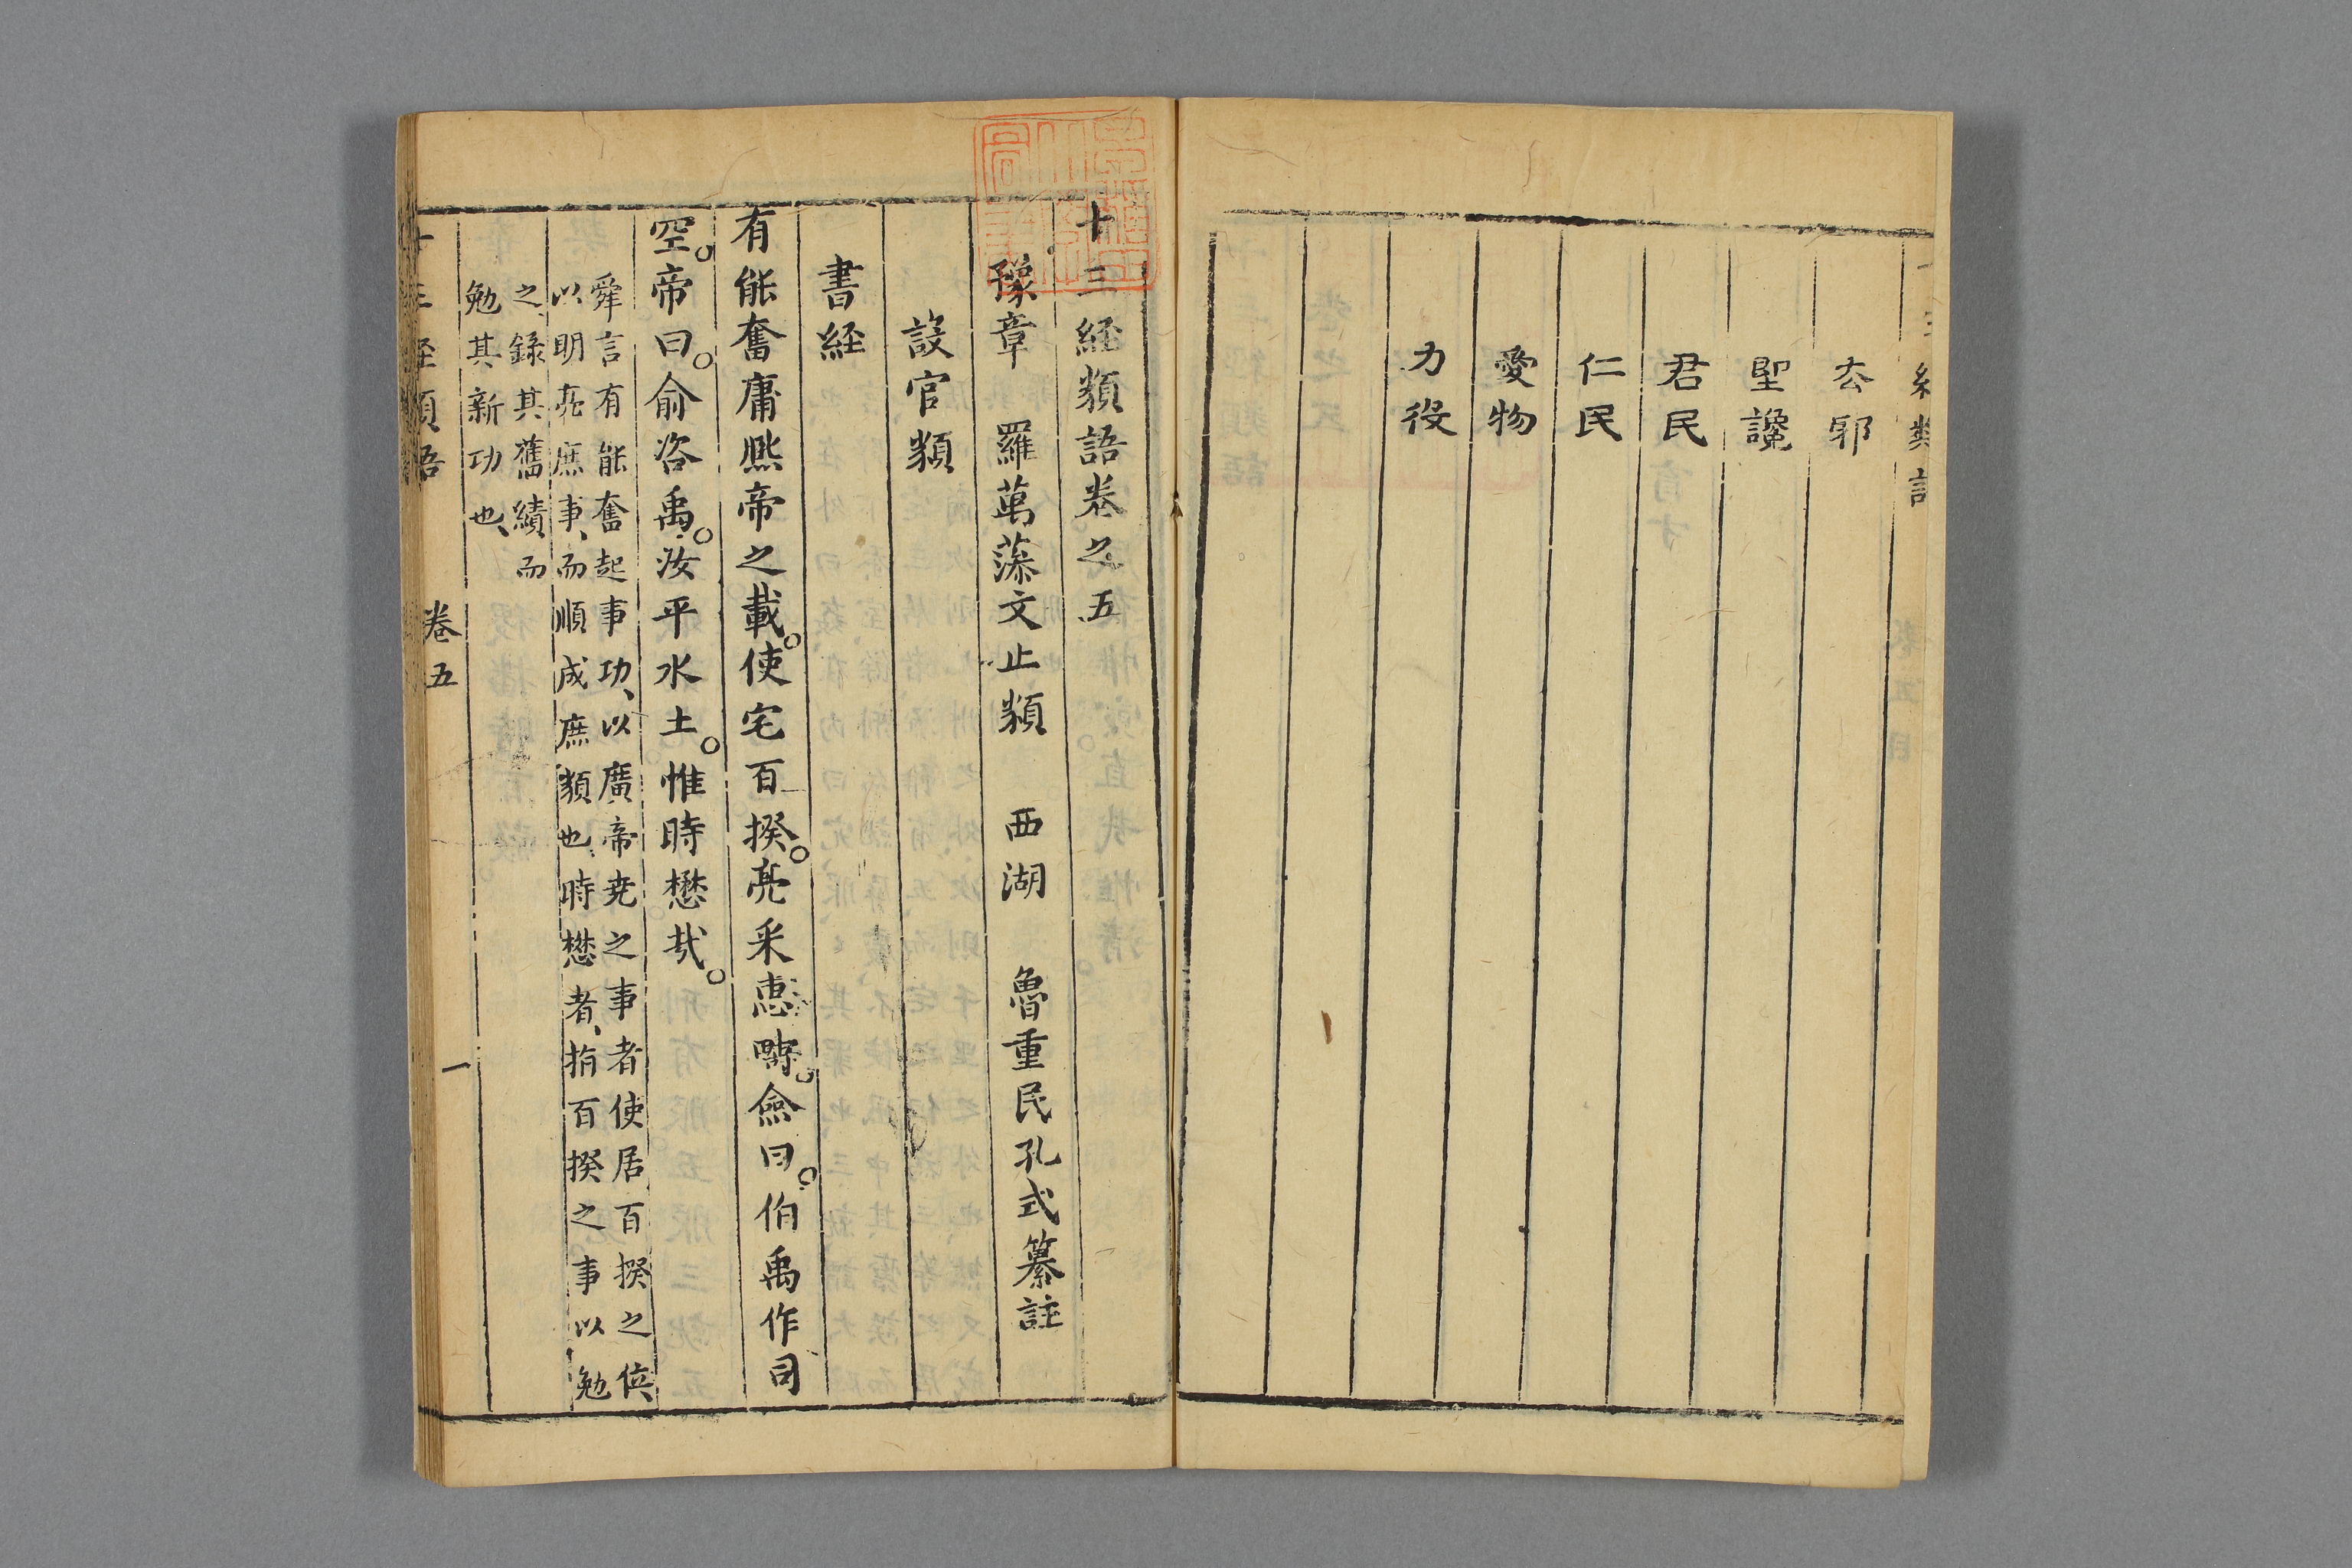 去邪
堲讒
君民
仁民
愛物
力役
十三経類語卷之五
豫章 羅萬藻文止類 西湖 魯重民孔式纂註
設官類
書経
有能奮庸熈帝之載。使宅百揆。亮采惠疇。僉曰。伯禹作司
空。帝曰。俞咨禹。汝平水土。惟時懋哉。
舜言有能奮起事功、以廣帝尭之事者使居百揆之位、
以明亮庶事、而順成庶類也、時懋者、指百揆之事以勉
之、錄其舊績而
勉其新功也、
十三経類語 卷五 一